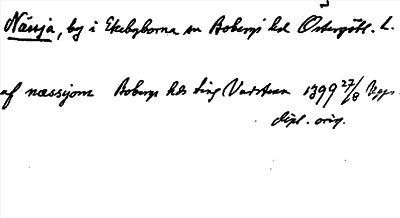 Nässja, by i Ekebyborna sn Bobergs hd Östergötl. L.
af næssyom Bobergs hds ting Vadstena 1399 27/8 Upps.
dipl. orig.